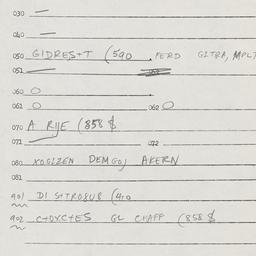 030 —
040 —
050 GIDRES+T (590 . FERD GITRA, MPLT
051
060 O
061 O 062 O
070 A RIJE (858 $
071 072
080 XOGIZEN DEMGOJ AKERN
081
901 DI S+TROXU8 (410
902 C+OXC+ES GL CHAPP (858 $